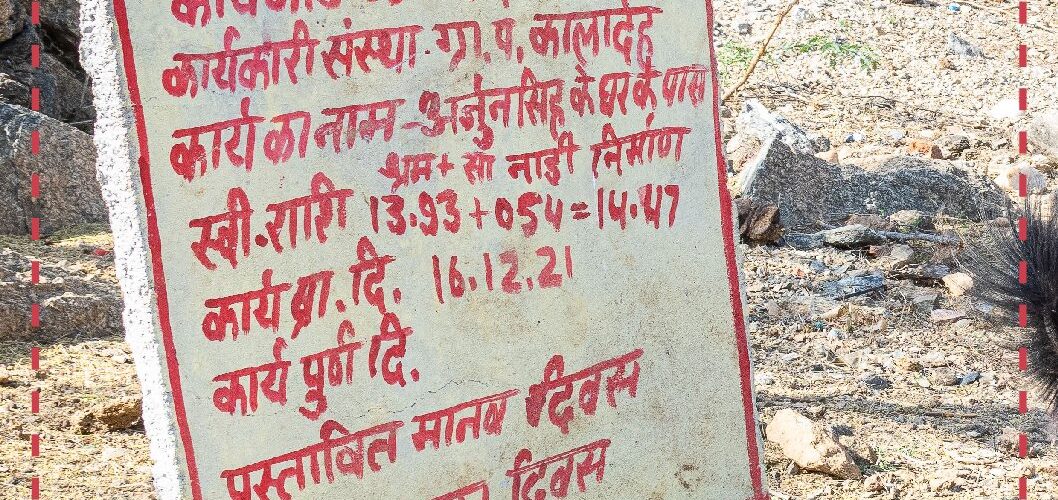 कार्यकारी संस्था - ग्रा.प. कालादेह
कार्य का नाम - अर्जुनसिंह के घर के पास
श्रम + सा नाडी निर्माण
स्वी. राशि 13.93+054=14.47
कार्य प्रा. दि. 16.12.21
कार्य पुर्ण दि.
प्रस्तावित मानव दिवस
दिवस